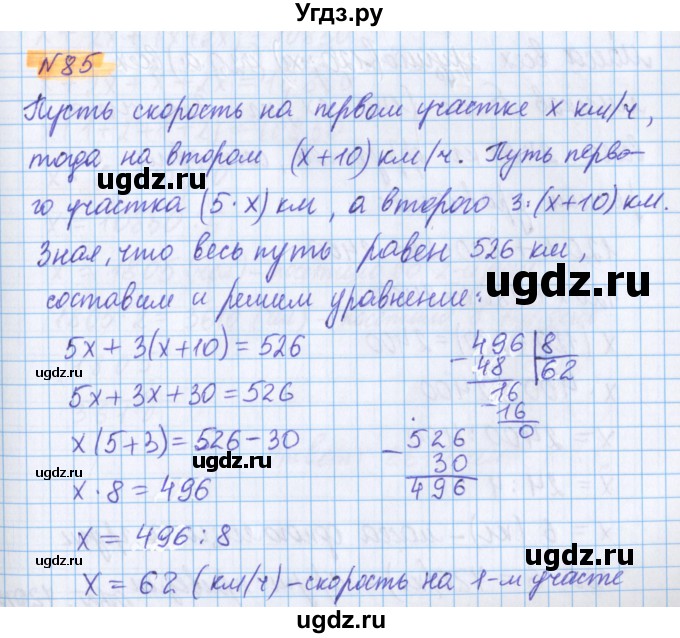 Угдз.ру
№85
Пусть скорость на первом участке x км/ч,
тогда на втором (x+10) км/ч. Путь перво-
го участка (5·x) км, а второго 3:(x+10) км.
Зная, что весь путь равен 526 км,
составим и решим уравнение:
5x+3(x+10)=526
5x+3x+30=526
x(5+3)=526-30
x·8=496
x=496:8
x=62 (км/ч)-скорость на 1-м участе
496 8
- 48 62
16
- 16
0
- 526
30
496
ugdz.ru
ugdz.ru
ugdz.ru
ugdz.ru
ugdz.ru
ugdz.ru
ugdz.ru
ugdz.ru
ugdz.ru
ugdz.ru
ugdz.ru